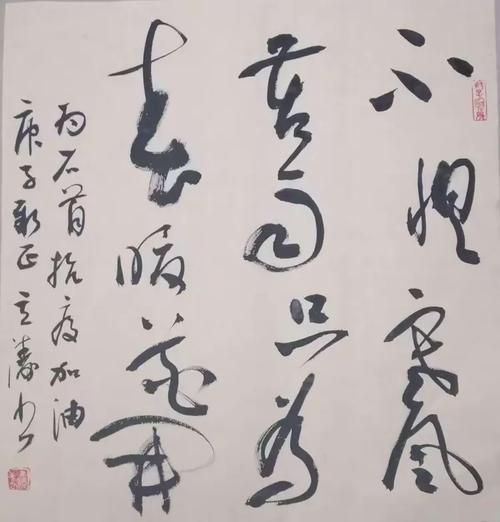 不惧寒风
苦雨只为
春暖花开
为石首抗疫加油
庚子新正